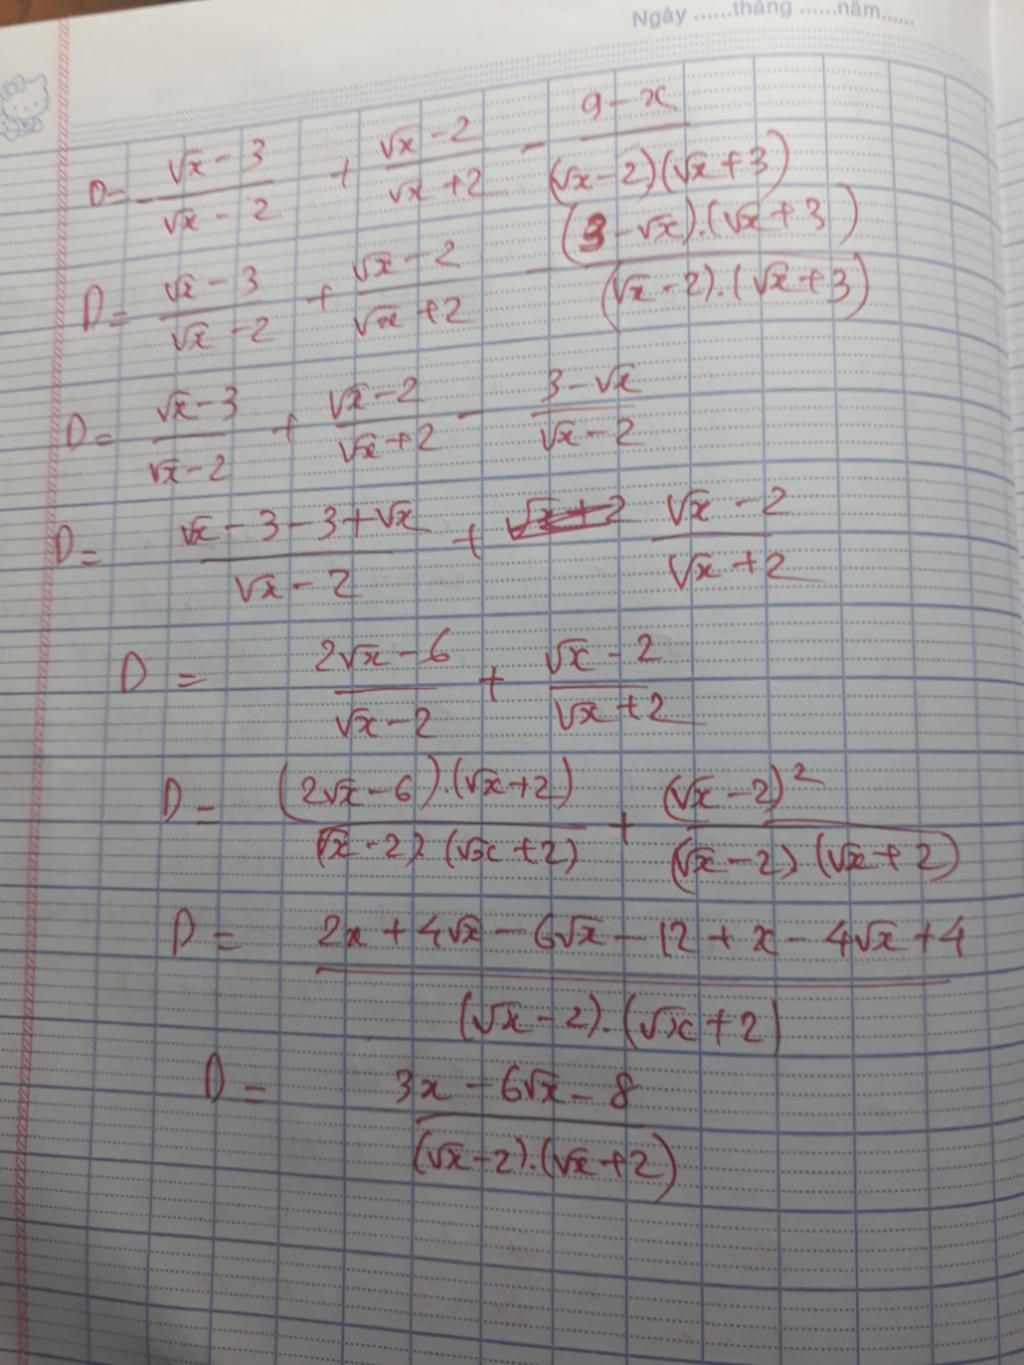 Ngày ......tháng ......năm......
D = (√x - 3)/(√x - 2) + (√x - 2)/(√x + 2) - (9 - x)/((√x - 2)(√x + 3))
D = (√x - 3)/(√x - 2) + (√x - 2)/(√x + 2) - ((3 - √x).(√x + 3))/((√x - 2).(√x + 3))
D = (√x - 3)/(√x - 2) + (√x - 2)/(√x + 2) - (3 - √x)/(√x - 2)
D = (√x - 3 - 3 + √x)/(√x - 2) + (√x - 2)/(√x + 2)
D = (2√x - 6)/(√x - 2) + (√x - 2)/(√x + 2)
D = ((2√x - 6).(√x + 2))/((√x - 2).(√x + 2)) + (√x - 2)²/((√x - 2).(√x + 2))
D = (2x + 4√x - 6√x - 12 + x - 4√x + 4)/((√x - 2).(√x + 2))
D = (3x - 6√x - 8)/((√x - 2).(√x + 2))